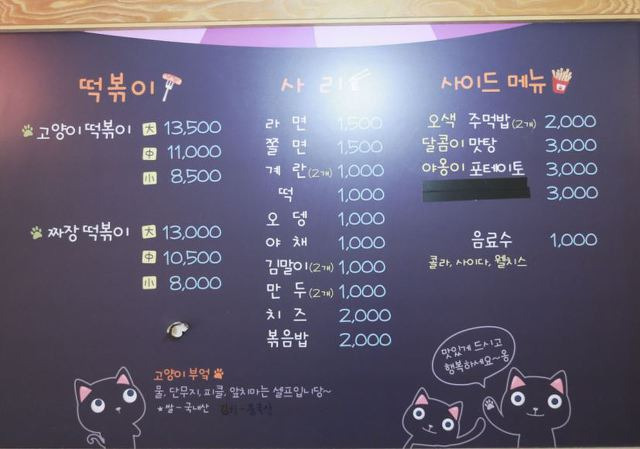 떡볶이
고양이 떡볶이 大 13,500
中 11,000
小 8,500
짜장 떡볶이 大 13,000
中 10,500
小 8,000
사리
라면 1,500
쫄면 1,500
계란(2개) 1,000
떡 1,000
오뎅 1,000
야채 1,000
김말이(2개) 1,000
만두(2개) 1,000
치즈 2,000
볶음밥 2,000
사이드 메뉴
오색 주먹밥(2개) 2,000
달콤이 맛탕 3,000
야옹이 포테이토 3,000
3,000
음료수 1,000
콜라, 사이다, 웰치스
고양이 부엌
물, 단무지, 피클, 앞치마는 셀프입니당~
*쌀-국내산 김치-중국산
맛있게 드시고
행복하세요~옹